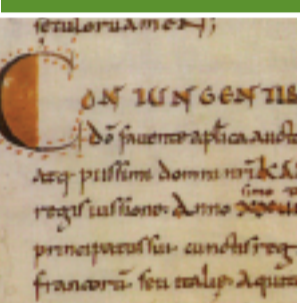 seculorum amen;
CON IUNGENTI
dō fauente aplica aucto
atq· piissimi domni nr̄i KA
regis iussione· Anno
principatus sui· cunctis reg
francorū· seu italie· Aquit